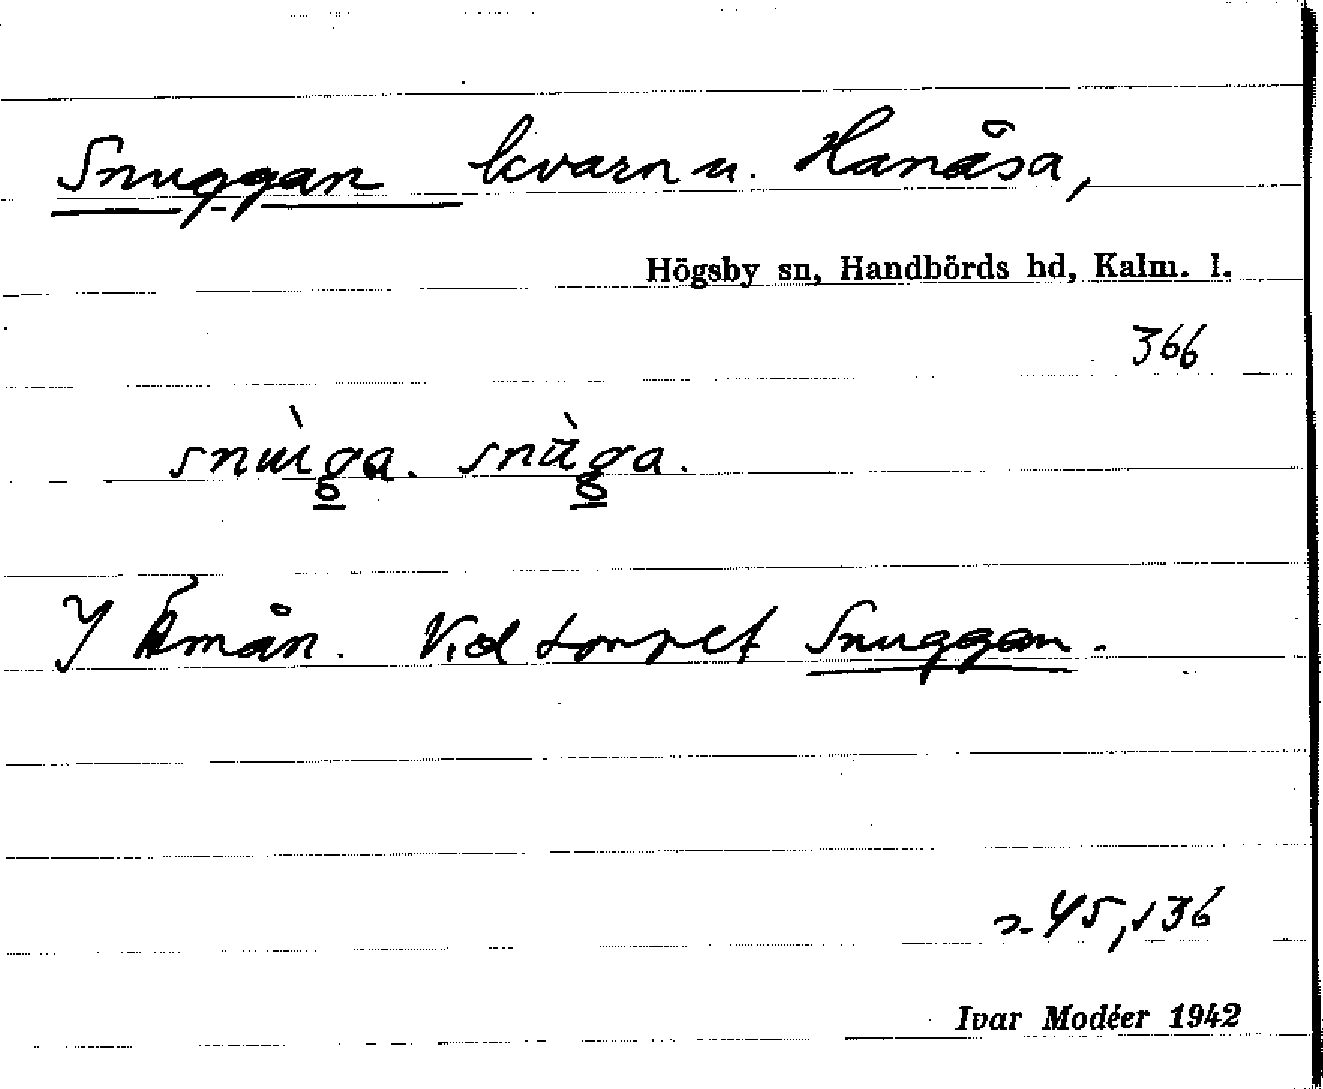 Snuggan kvarn u. Hanåsa,
Högsby sn, Handbörds hd, Kalm. l.
366
snùga. snùga.
I Emån. Vid torpet Snuggan.
45,136
Ivar Modéer 1942